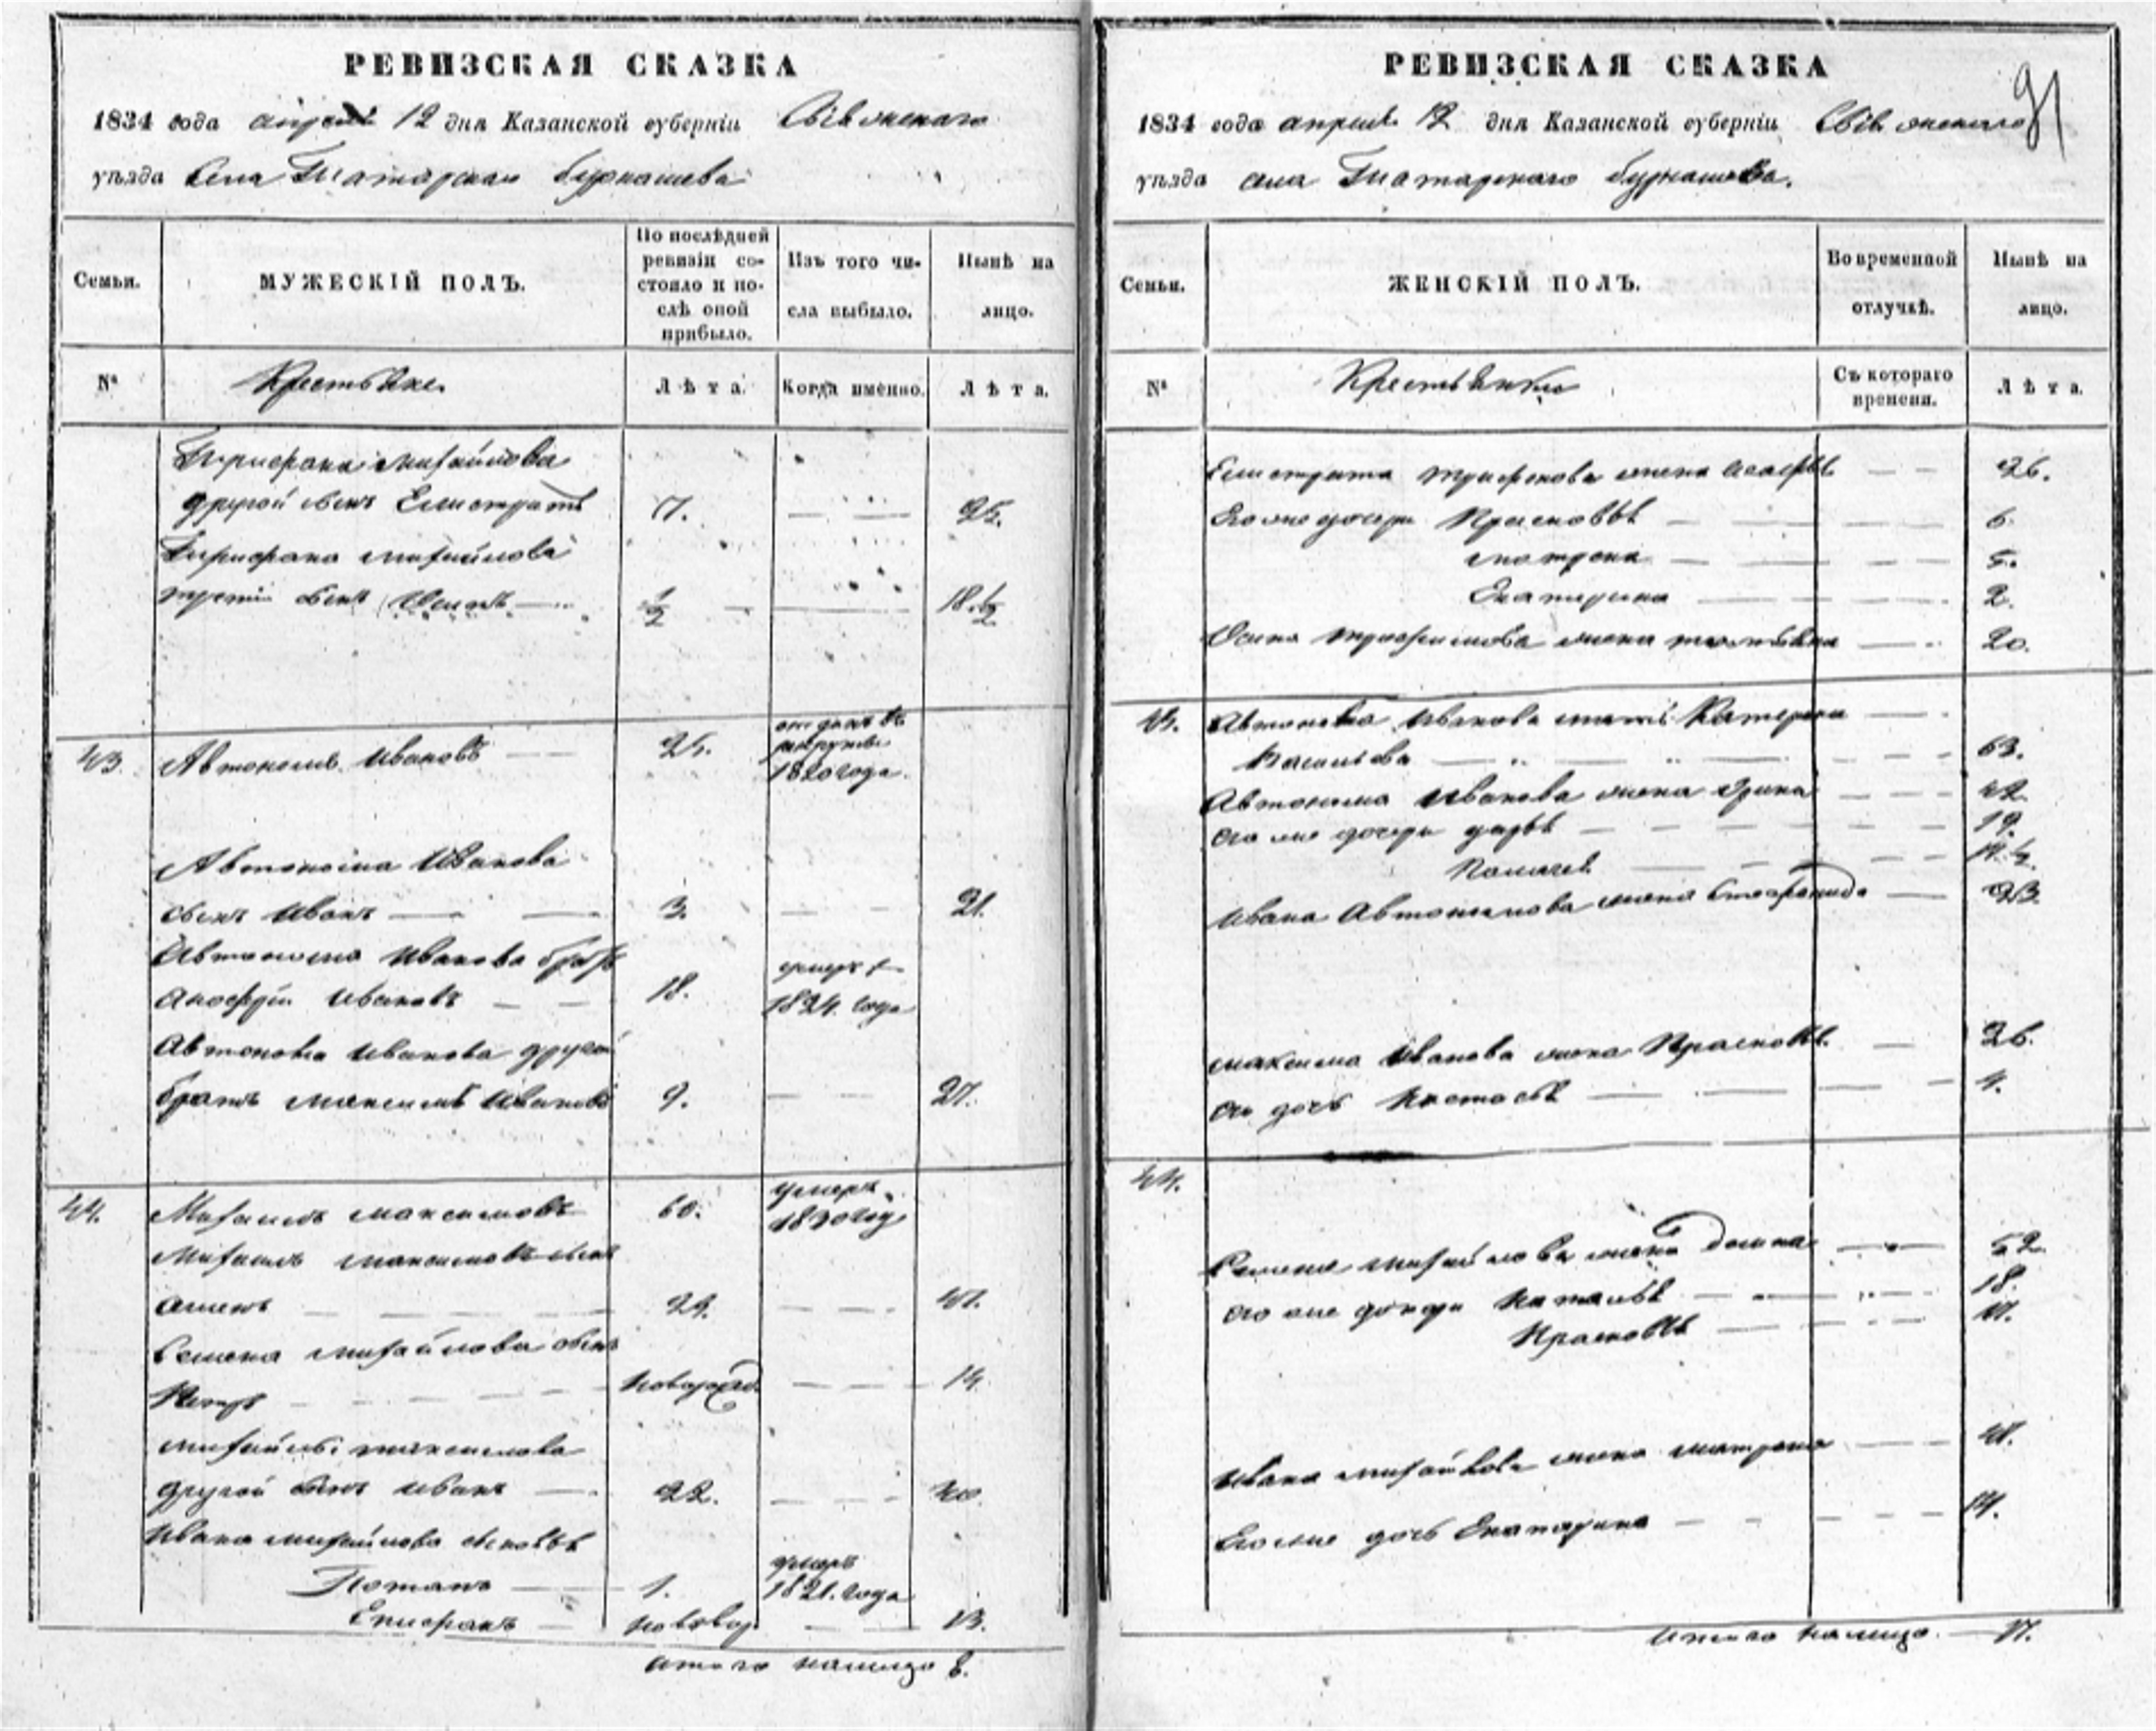 РЕВИЗСКАЯ СКАЗКА
1834 года апреля 12 дня Казанской губерніи Свіяжскаго
уѣзда Села Татарскаго Бурнашева
Семьи.
МУЖЕСКІЙ ПОЛЪ.
По послѣдней ревизіи состояло и послѣ оной прибыло.
Изъ того числа выбыло.
Нынѣ на лицо.
№
Крестьяне.
Лѣта.
Когда именно.
Лѣта.
Трифона Михайлова
другой сынъ Елистратъ 17. 35.
Трифона Михайлова
третій сынъ Осипъ ½ 18.½
43. Автономъ Ивановъ 25. отданъ въ рекруты 1820 года.
Автонома Иванова
сынъ Иванъ 3. 21.
Автонома Иванова братъ
Ивановъ 18. умеръ 1824. года
Автонома Иванова другой
братъ Максимъ Ивановъ 9. 27.
44. Михаилъ Максимовъ 60. умеръ 1830 году
Михаилъ Максимовъ сынъ
29. 47.
Семена Михайлова сынъ
Петръ новорожд. 14.
Михайлы Максимова
другой сынъ Иванъ 22. 40.
Ивана Михайлова сыновья
Потапъ 1. умеръ 1821. года
Епифанъ новорож. 13.
Итого налицо 8.
РЕВИЗСКАЯ СКАЗКА
91
1834 года апреля 12 дня Казанской губерніи Свіяжскаго
уѣзда села Татарскаго Бурнашева.
Семьи.
ЖЕНСКІЙ ПОЛЪ.
Во временной отлучкѣ.
Нынѣ на лицо.
№
Крестьянки
Съ котораго времени.
Лѣта.
Елистрата Трифонова жена 36.
Его же дочери Прасковья 6.
Матрена 5.
Екатерина 2.
Осипа жена 20.
43. Автонома Иванова мать Катерина
Васильева 63.
Автонома Иванова жена Ирина 42.
его же дочери Дарья 19.
Пелагея 14.½
Ивана Автономова жена Степанида 23.
Максима Иванова жена Прасковья 26.
его дочь Настасья 4.
44.
Семена Михайлова жена Домна 52.
его же дочери Наталья 18.
Прасковья 17.
Ивана Михайлова жена Матрена 41.
Его же дочь Екатерина 14.
Итого налицо 17.